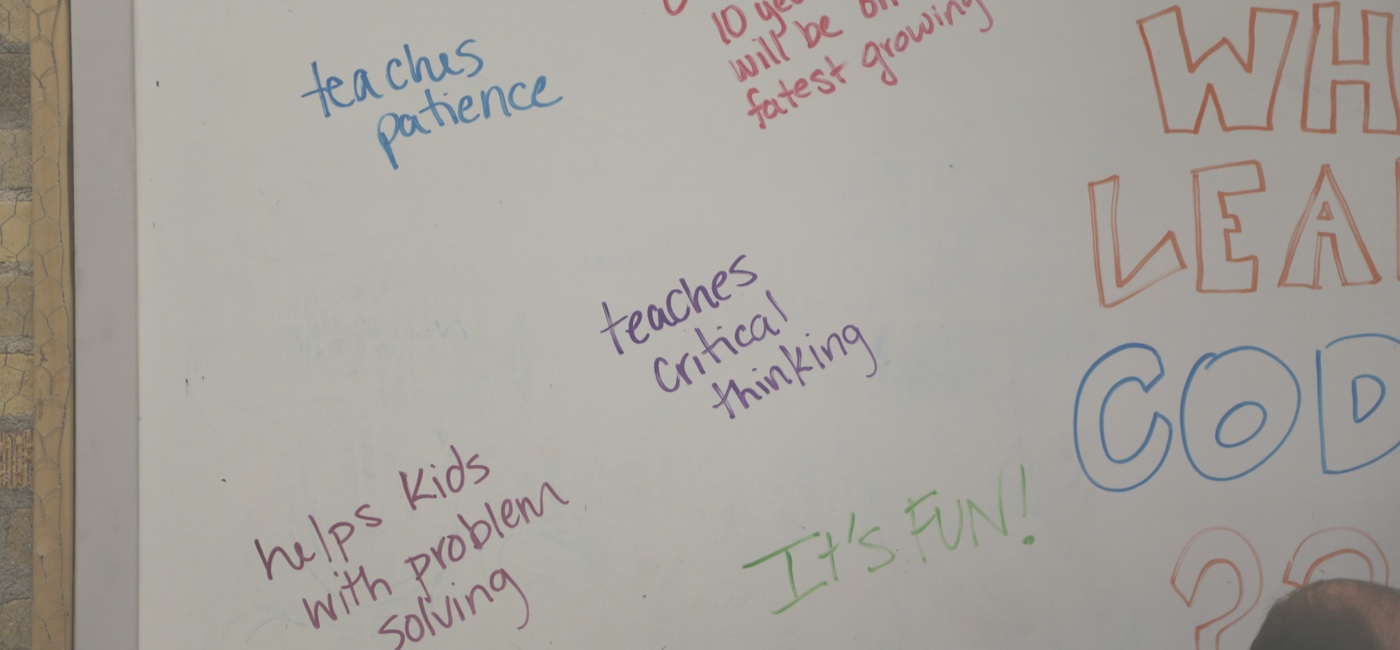 teaches
patience
10
will be
fatest growing
teaches
critical
thinking
helps kids
with problem
solving
It's FUN!
WH
LEA
COD
??